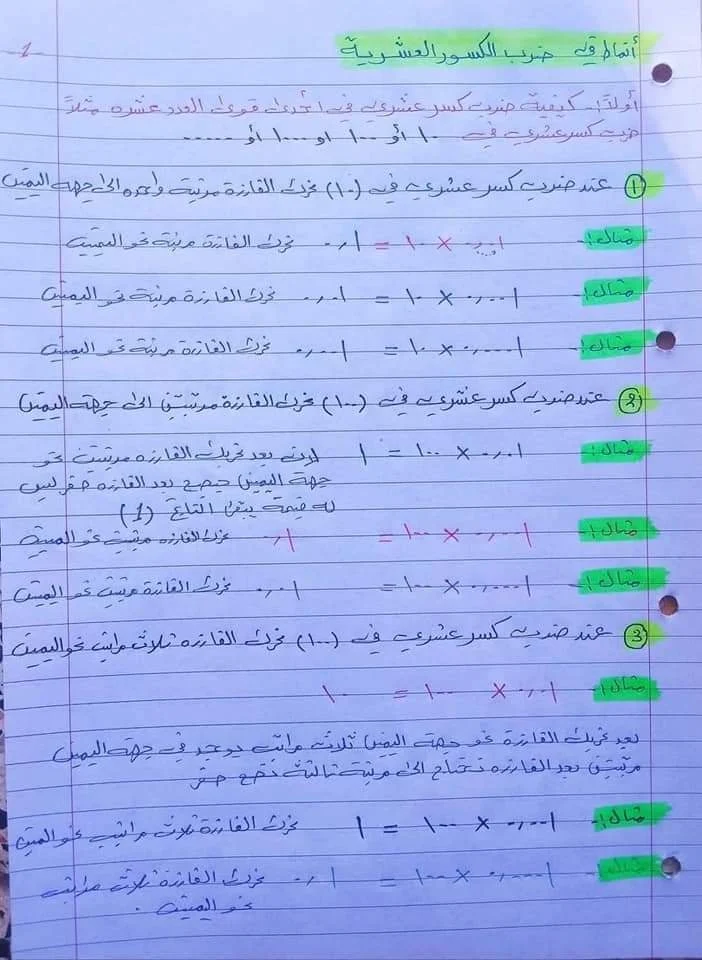 -1-
أنماط في ضرب الكسور العشرية
أولاً:- كيفية ضرب كسر عشري في احدى قوى العدد عشره مثلاً
ضرب كسر عشري في ١٠ أو ١٠٠ او ١٠٠٠ أو ......
① عند ضرب كسر عشري في (١٠) نحرك الفارزة مرتبة واحده الى جهة اليمين
مثال:- ٠,٠١ × ١٠ = ٠,١ نحرك الفارزة مرتبة نحو اليمين
مثال:- ٠,٠٠١ × ١٠ = ٠,٠١ نحرك الفارزة مرتبة نحو اليمين
مثال:- ٠,٠٠٠١ × ١٠ = ٠,٠٠١ نحرك الفارزة مرتبة نحو اليمين
② عند ضرب كسر عشري في (١٠٠) نحرك الفارزة مرتبتين الى جهة اليمين
مثال:- ٠,٠١ × ١٠٠ = ١ لانه بعد تحريك الفارزه مرتبتين نحو
جهة اليمين يصبح بعد الفارزه صفر ليس
له قيمة يبقى الناتج (1)
مثال:- ٠,٠٠١ × ١٠٠ = ٠,١ نحرك الفارزه مرتبتين نحو اليمين
مثال:- ٠,٠٠٠١ × ١٠٠ = ٠,٠١ نحرك الفارزة مرتبتين نحو اليمين
③ عند ضرب كسر عشري في (١٠٠٠) نحرك الفارزه ثلاث مراتب نحو اليمين
مثال:- ٠,٠١ × ١٠٠٠ = ١٠
بعد تحريك الفارزة نحو جهة اليمين ثلاث مراتب يوجد في جهة اليمين
مرتبتين بعد الفارزه نحتاج الى مرتبة ثالثة نضع صفر
مثال:- ٠,٠٠١ × ١٠٠٠ = ١ نحرك الفارزة ثلاث مراتب نحو اليمين
مثال:- ٠,٠٠٠١ × ١٠٠٠ = ٠,١ نحرك الفارزة ثلاث مراتب
نحو اليمين .